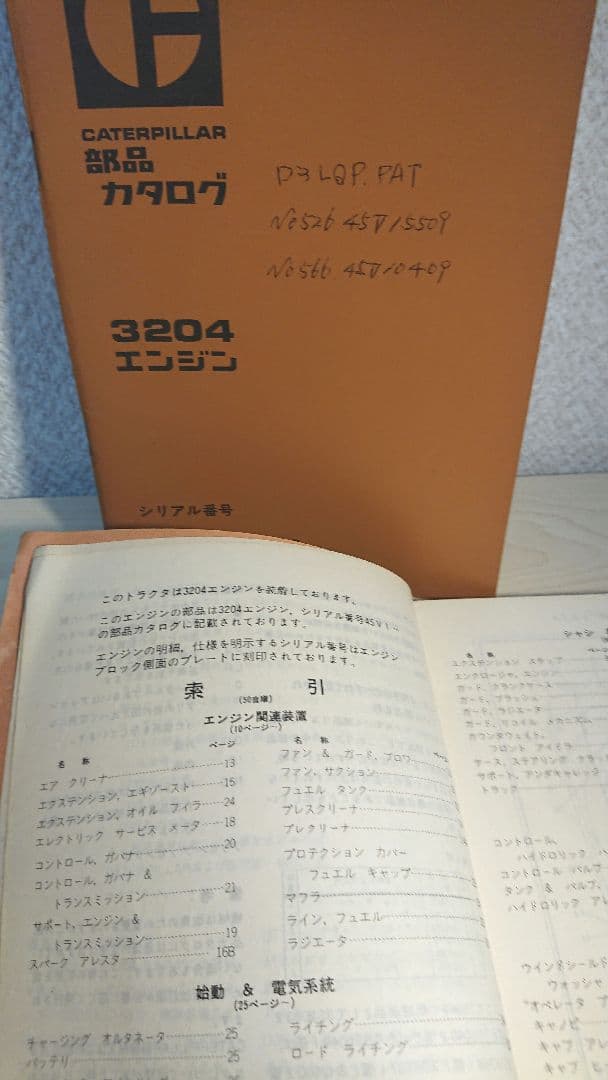 CATERPILLAR
部品
カタログ
D3 LGP. PAT
No526 45V15509
No566. 45V10409
3204
エンジン
シリアル番号
このトラクタは3204エンジンを装備しております。
このエンジンの部品は3204エンジン、シリアル番号45V1~
の部品カタログに記載されております。
エンジンの明細、仕様を明示するシリアル番号はエンジン
ブロック側面のプレートに刻印されております。
索 引
(50音順)
エンジン関連装置
(10ページ~)
名 称 ページ
エア クリーナ 13
エクステンション、エギゾースト 15
エクステンション、オイル フィラ 24
エレクトリック サービス メータ 18
コントロール、ガバナ 20
コントロール、ガバナ &
トランスミッション 21
サポート、エンジン &
トランスミッション 19
スパーク アレスタ 16B
名 称 ページ
ファン & ガード、ブロワ
ファン、サクション
フュエル タンク
プレスクリーナ
プレクリーナ
プロテクション カバー
フュエル キャップ
マフラ
ライン、フュエル
ラジエータ
始動 & 電気系統
(25ページ~)
チャージング オルタネータ 25
バッテリ 25
ライチング
ロード ライチング
シャシ
エクステンション ステップ
エンクロージャ、エンジン
ガード、クランクケース
ガード、ブラッシュ
ガード、ラジエータ
ガード、リコイル メカニズム
カウンタウェイト、
フロント アイドラ
ケース、ステアリング クラ
サポート、アンダキャレッジ
トラック
コントロール、
ハイドロリック
コントロール バルブ
タンク & バルブ、
ハイドロリック
ウインドシールド
ウォッシャ
オペレータ
キャノピ
キャブ
キャブ